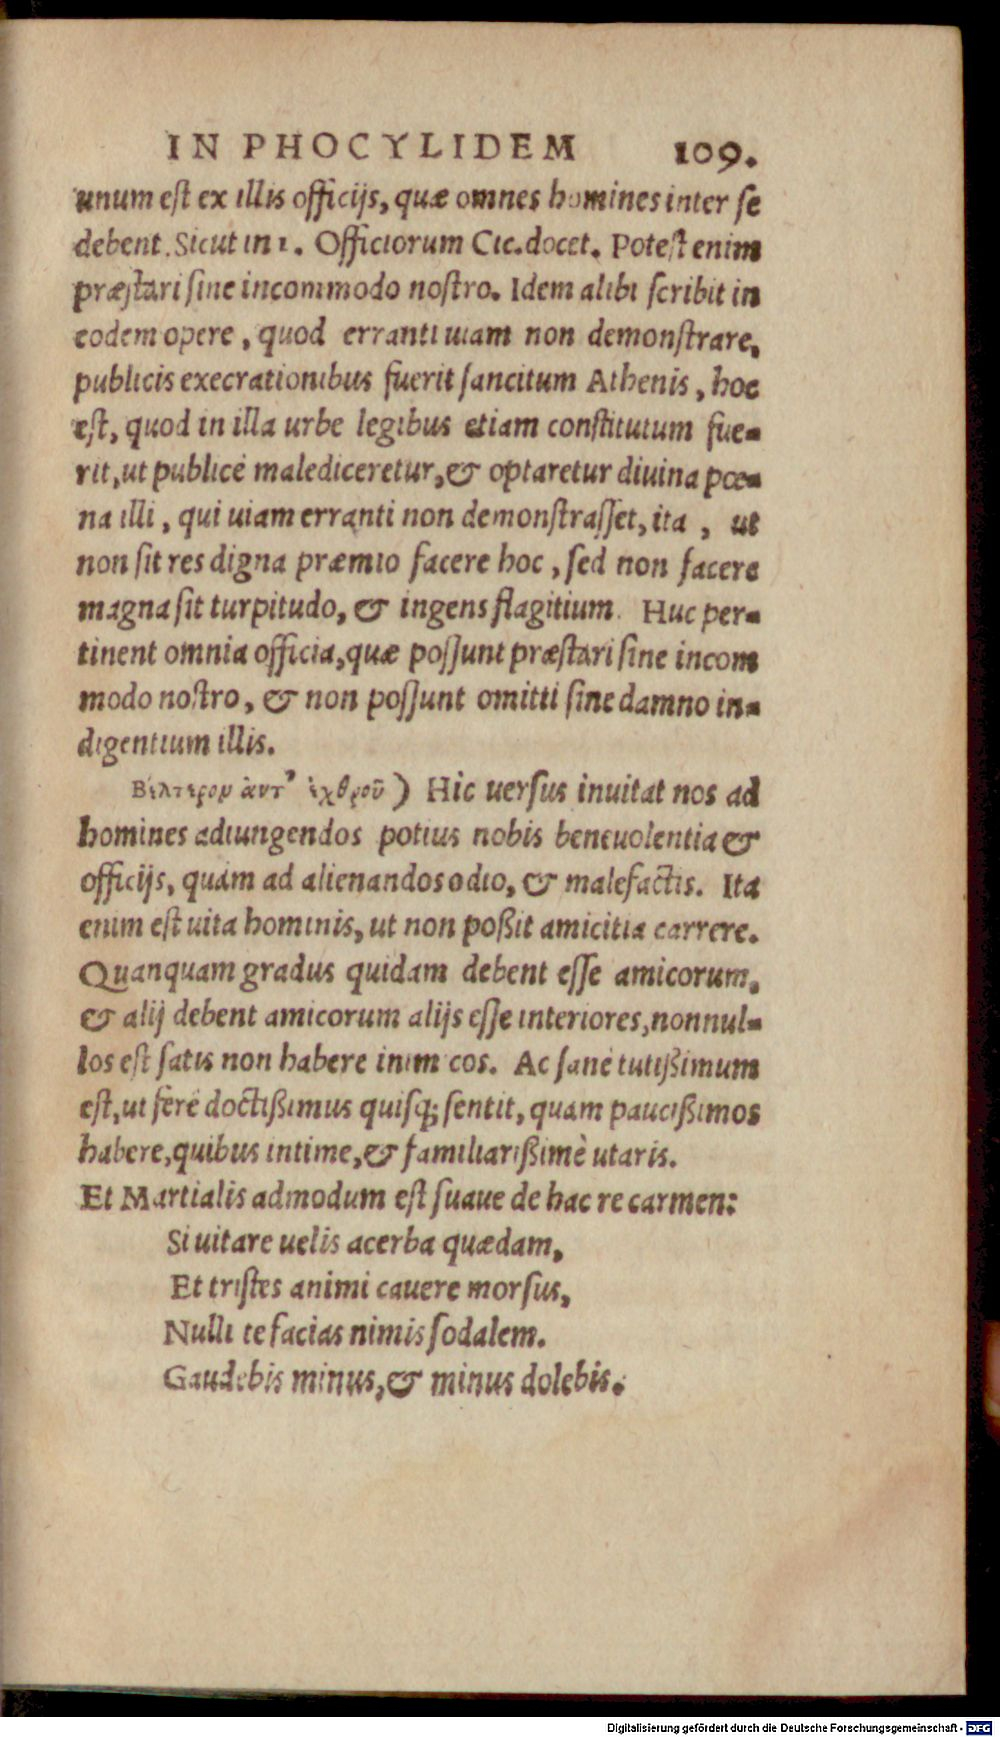 IN PHOCYLIDEM 109.
unum est ex illis officijs, quæ omnes homines inter se
debent. Sicut in 1. Officiorum Cic. docet. Potest enim
præstari sine incommodo nostro. Idem alibi scribit in
eodem opere, quod erranti uiam non demonstrare,
publicis execrationibus fuerit sancitum Athenis, hoc
est, quod in illa urbe legibus etiam constitutum fue-
rit, ut publicè malediceretur, & optaretur diuina pœ-
na illi, qui uiam erranti non demonstrasset, ita, ut
non sit res digna præmio facere hoc, sed non facere
magna sit turpitudo, & ingens flagitium. Huc per-
tinent omnia officia, quæ possunt præstari sine incom
modo nostro, & non possunt omitti sine damno in-
digentium illis.
Βέλτερον ἀντ' ἐχθροῦ) Hic uersus inuitat nos ad
homines adiungendos potius nobis beneuolentia &
officijs, quàm ad alienandos odio, & malefactis. Ita
enim est uita hominis, ut non poßit amicitia carrere.
Quanquam gradus quidam debent esse amicorum,
& alij debent amicorum alijs esse interiores, nonnul-
los est satis non habere inimicos. Ac sanè tutißimum
est, ut ferè doctißimus quisq; sentit, quam paucißimos
habere, quibus intime, & familiarißimè utaris.
Et Martialis admodum est suaue de hac re carmen:
Si uitare uelis acerba quædam,
Et tristes animi cauere morsus,
Nulli te facias nimis sodalem.
Gaudebis minus, & minus dolebis.
Digitalisierung gefördert durch die Deutsche Forschungsgemeinschaft - DFG